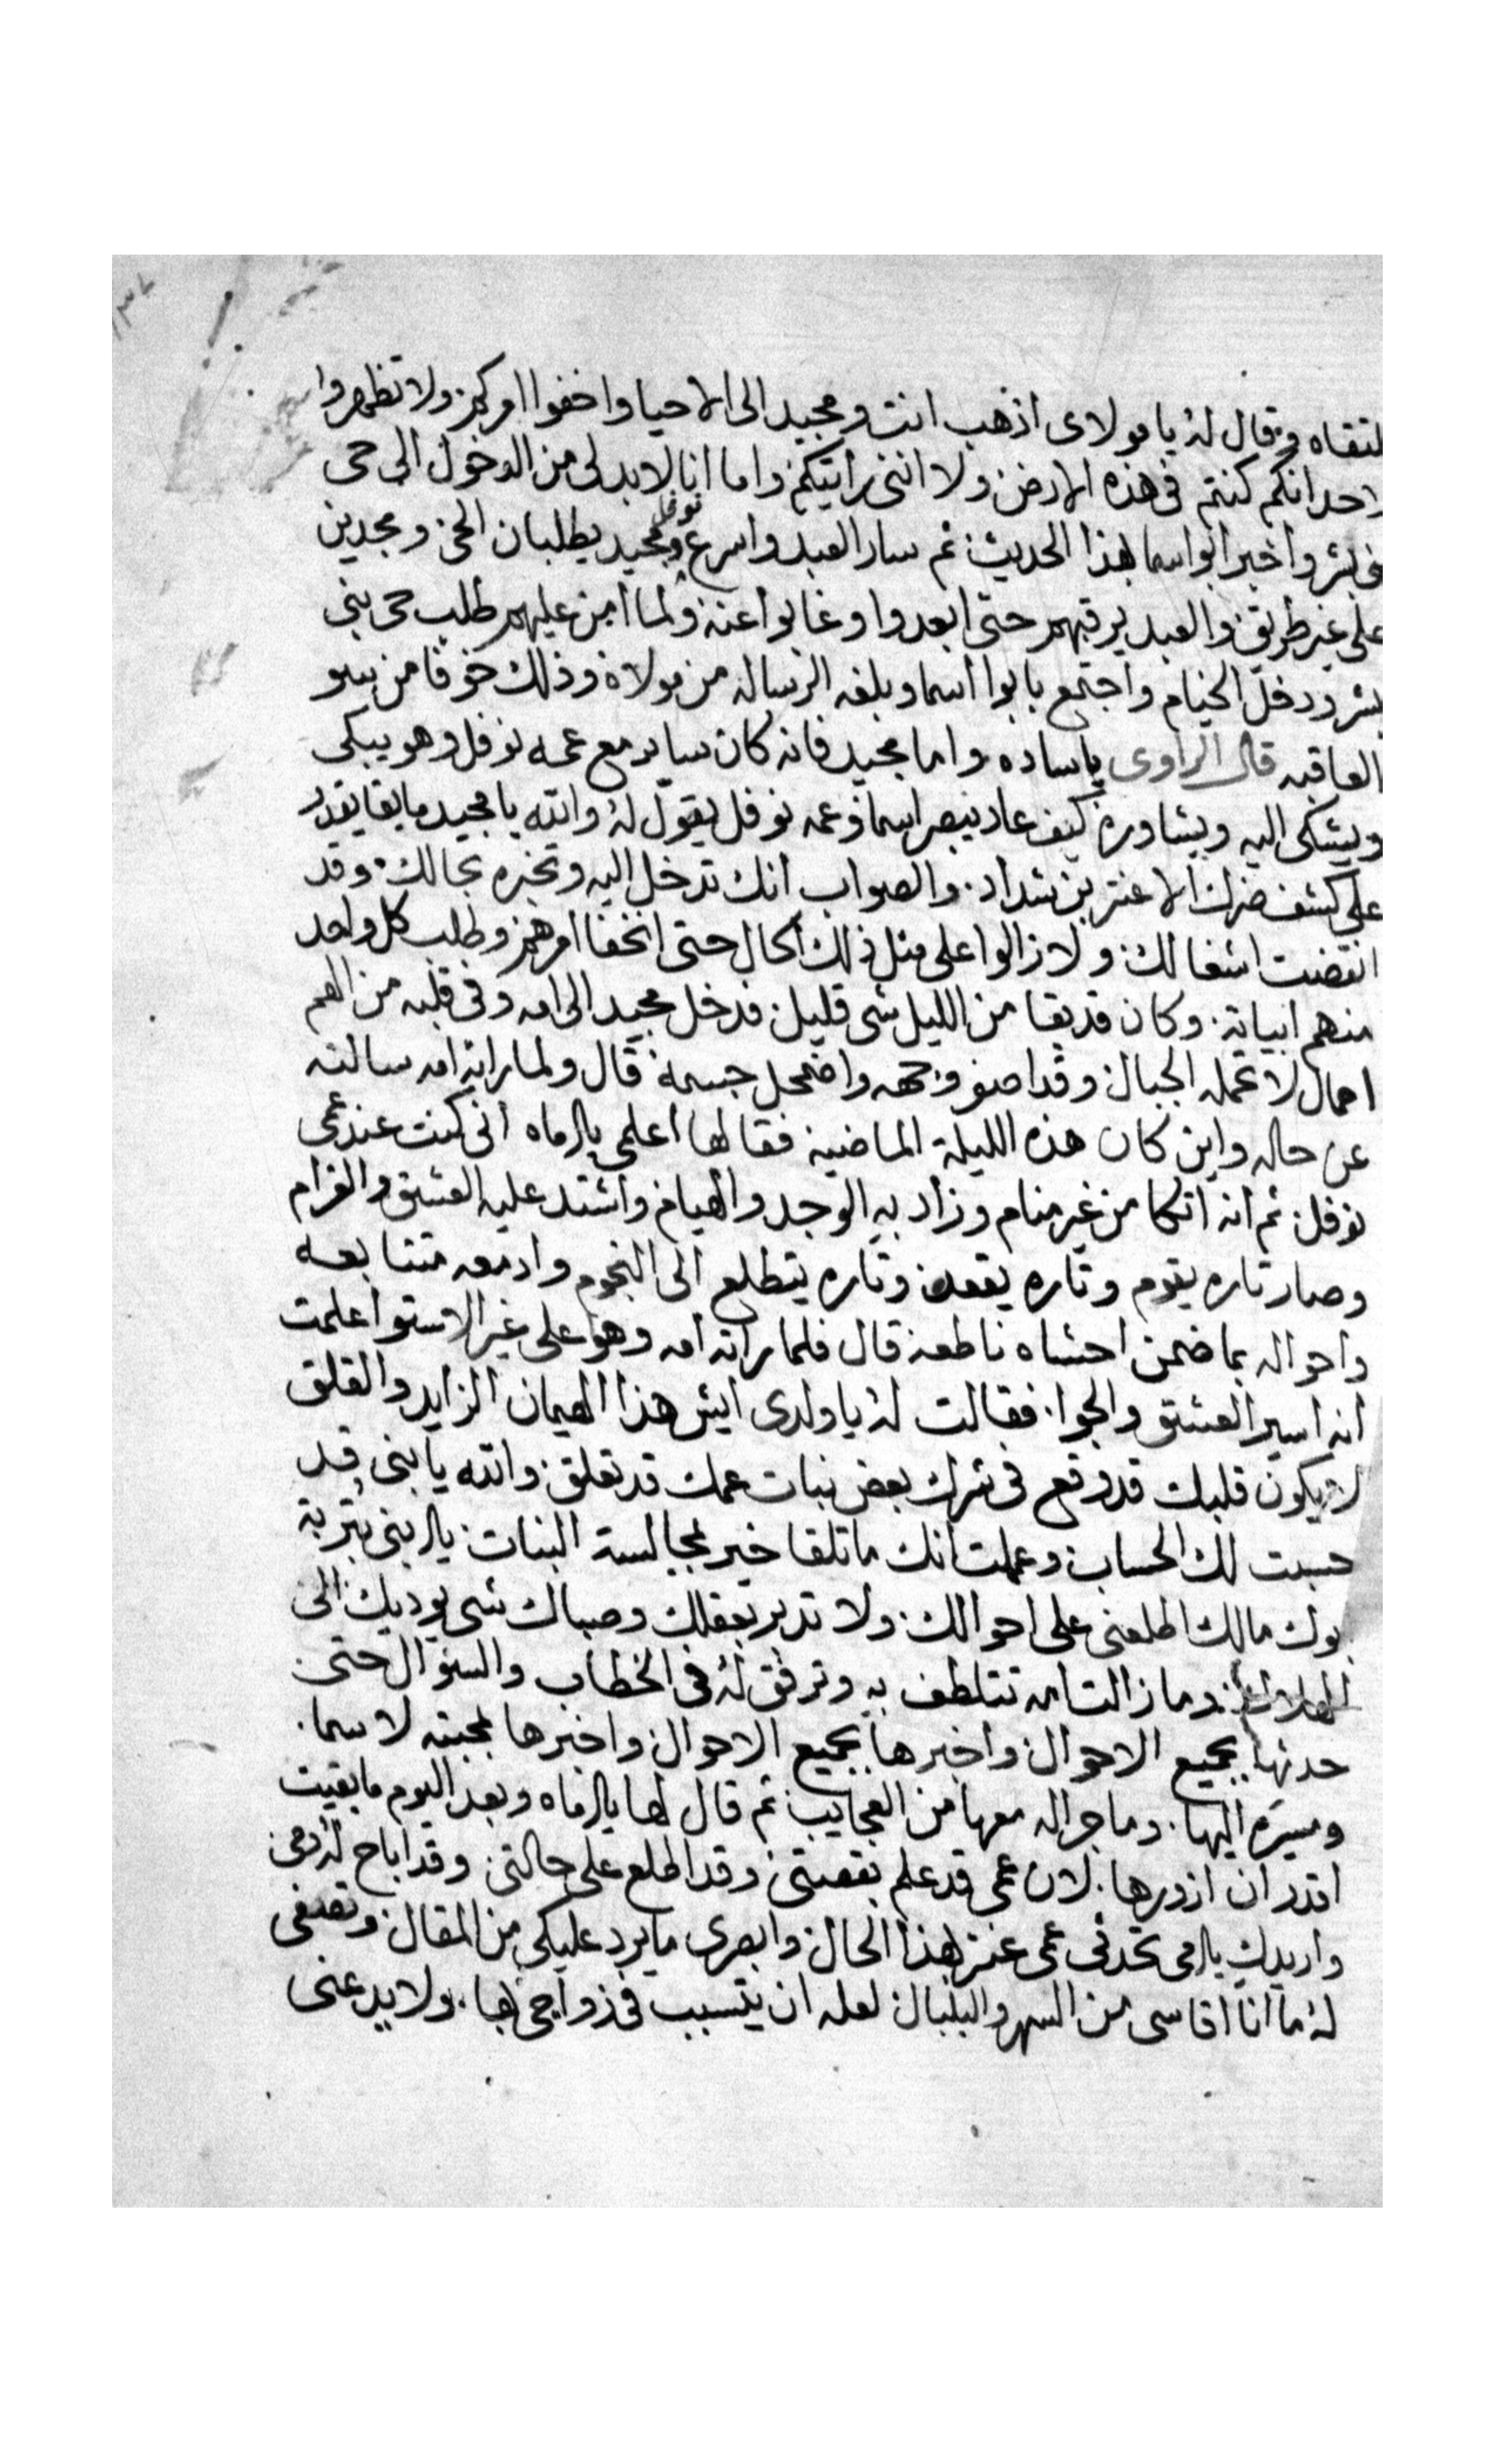 لتقاه وقال له يا مولاى اذهب انت ومجيد الى الاحيا واخفوا امركم ولا تظهروا
لاحد انكم كنتم فى هذه الارض ولا اننى رايتكم واما انا لا بد لى من الدخول الى حى
بنى بشر واخبر ابو اسما بهذا الحديث ثم سار العبد واسرع نوفل ومجيد يطلبان الحى ومجدين
على غير طريق والعبد يرقبهم حتى ابعدوا وغابوا عنه ولما امن عليهم طلب حى بنى
بشر ودخل الخيام واجتمع بابوا اسما وبلغه الرساله من مولاه وذلك خوفا من سو
العاقبه قال الراوى ياساده واما مجيد فانه كان ساير مع عمه نوفل وهو يبكى
ويشكى اليه ويشاوره كيف عاد يبصر اسما وعمه نوفل يقول له والله يا مجيد ما بقا يقدر
على كشف ضرك الا عنتر بن شداد والصواب انك تدخل اليه وتخبره بحالك وقد
انقضت اشغالك ولا زالوا على مثل ذلك الحال حتى انخفا امرهم وطلب كل واحد
منهم ابياته وكان قد بقا من الليل شى قليل فدخل مجيد الى امه وفى قلبه من الهم
احمال لا تحمله الجبال وقد اصفر وجهه واضمحل جسمه قال ولما راته امه سالته
عن حاله واين كان هذه الليلة الماضية فقالها اعلمى يا اماه انى كنت عند عمى
نوفل ثم انه اتكا من غير منام وزاد به الوجد والهيام واشتد عليه العشق والغرام
وصار تاره يقوم وتاره يقعد وتاره يتطلع الى النجوم وادمعه متتابعه
واحواله بما ضمن احشاه ناطعه قال فلما راته امه وهو على غير الاستوا علمت
انه اسير العشق والجوا فقالت له يا ولدى ايش هذا الهيمان الزايد والقلق
لا يكون قلبك قد وقع فى شرك بعض بنات عمك قد تعلق والله يا بنى قد
حسبت لك الحساب وعملت انك ما تلقا خير لمجالسة البنات يا ابنى بتربة
ابوك مالك اطلعنى على احوالك ولا تدبر بعقلك وصباك شى يوديك الى
المهلاك وما زالت امه تتلطف به وترفق له فى الخطاب والسؤال حتى
حدثها بجميع الاحوال واخبرها بجميع الاحوال واخبرها بمحبته لاسما
ومسيره اليها وما جرا له معها من العجايب ثم قال لها يا اماه وبعد اليوم ما بقيت
اقدر ان ازورها لان عمى قد علم بقصتى وقد اطلع على حالتى وقد اباح له دمى
واريدك يا امى تحدثى عمى عنتر بهذا الحال وابصرى ما يرد عليكى من المقال وتصفى
له ما انا اقاسى من السهر والبلبال لعله ان يتسبب فى زواجى بها ولا يدعنى